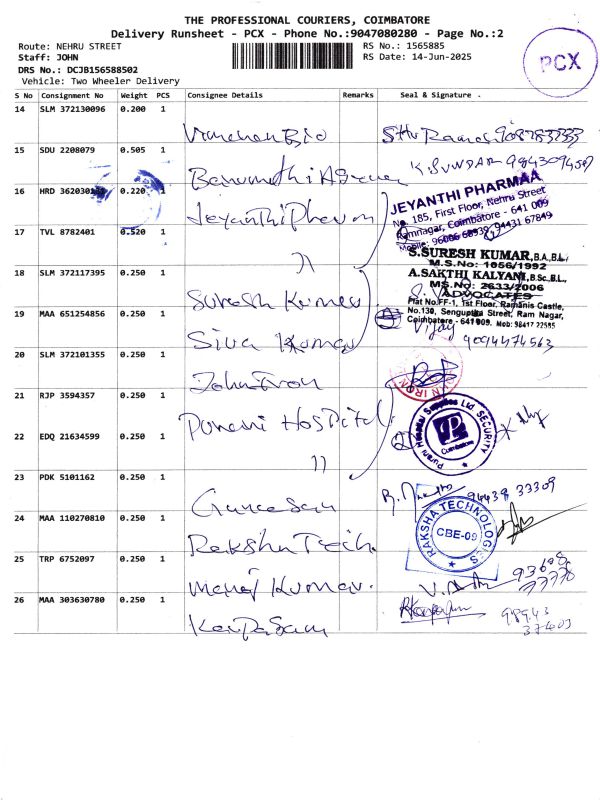 THE PROFESSIONAL COURIERS, COIMBATORE
Delivery Runsheet - PCX - Phone No.:9047080280 - Page No.:2
Route: NEHRU STREET
RS No.: 1565885
Staff: JOHN
RS Date: 14-Jun-2025
DRS No.: DCJB156588502
Vehicle: Two Wheeler Delivery
PCX
S No Consignment No Weight PCS Consignee Details Remarks Seal & Signature .
14 SLM 372130096 0.200 1
15 SDU 2208079 0.505 1
16 HRD 0.220 1 Jeyanthi
JEYANTHI PHARMAA
No. 185, First Floor, Nehru Street
Ramnagar, Coimbatore - 641 009
17 TVL 8782401 0.520 1 〃
S.SURESH KUMAR, B.A., B.L.,
M.S.No: 1056/1992
A.SAKTHI KALYANI, B.Sc.,B.L.,
M.S.No: 2633/2006
ADVOCATES
Flat No.FF-1, 1st Floor, Ramanis Castle,
No.130, Sengupta Street, Ram Nagar,
Coimbatore - 641 009. Mob: 98417 22585
18 SLM 372117395 0.250 1 Suresh Kumar
19 MAA 651254856 0.250 1 Siva Kumar
Vijay
9094474563
20 SLM 372101355 0.250 1
21 RJP 3594357 0.250 1 Purani Hospital
Purani Hospital Supplies Ltd SECURITY
Coimbatore
22 EDQ 21634599 0.250 1 〃
23 PDK 5101162 0.250 1
94438 33309
24 MAA 110270810 0.250 1 Raksha Tech.
RAKSHA TECHNOLOGIES
CBE-09
25 TRP 6752097 0.250 1 Manoj Kumar.
26 MAA 303630780 0.250 1
98943
37403